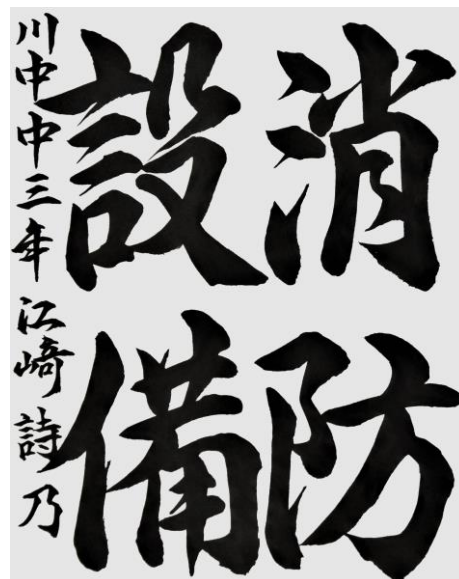 消防
設備
川中中三年 江﨑詩乃